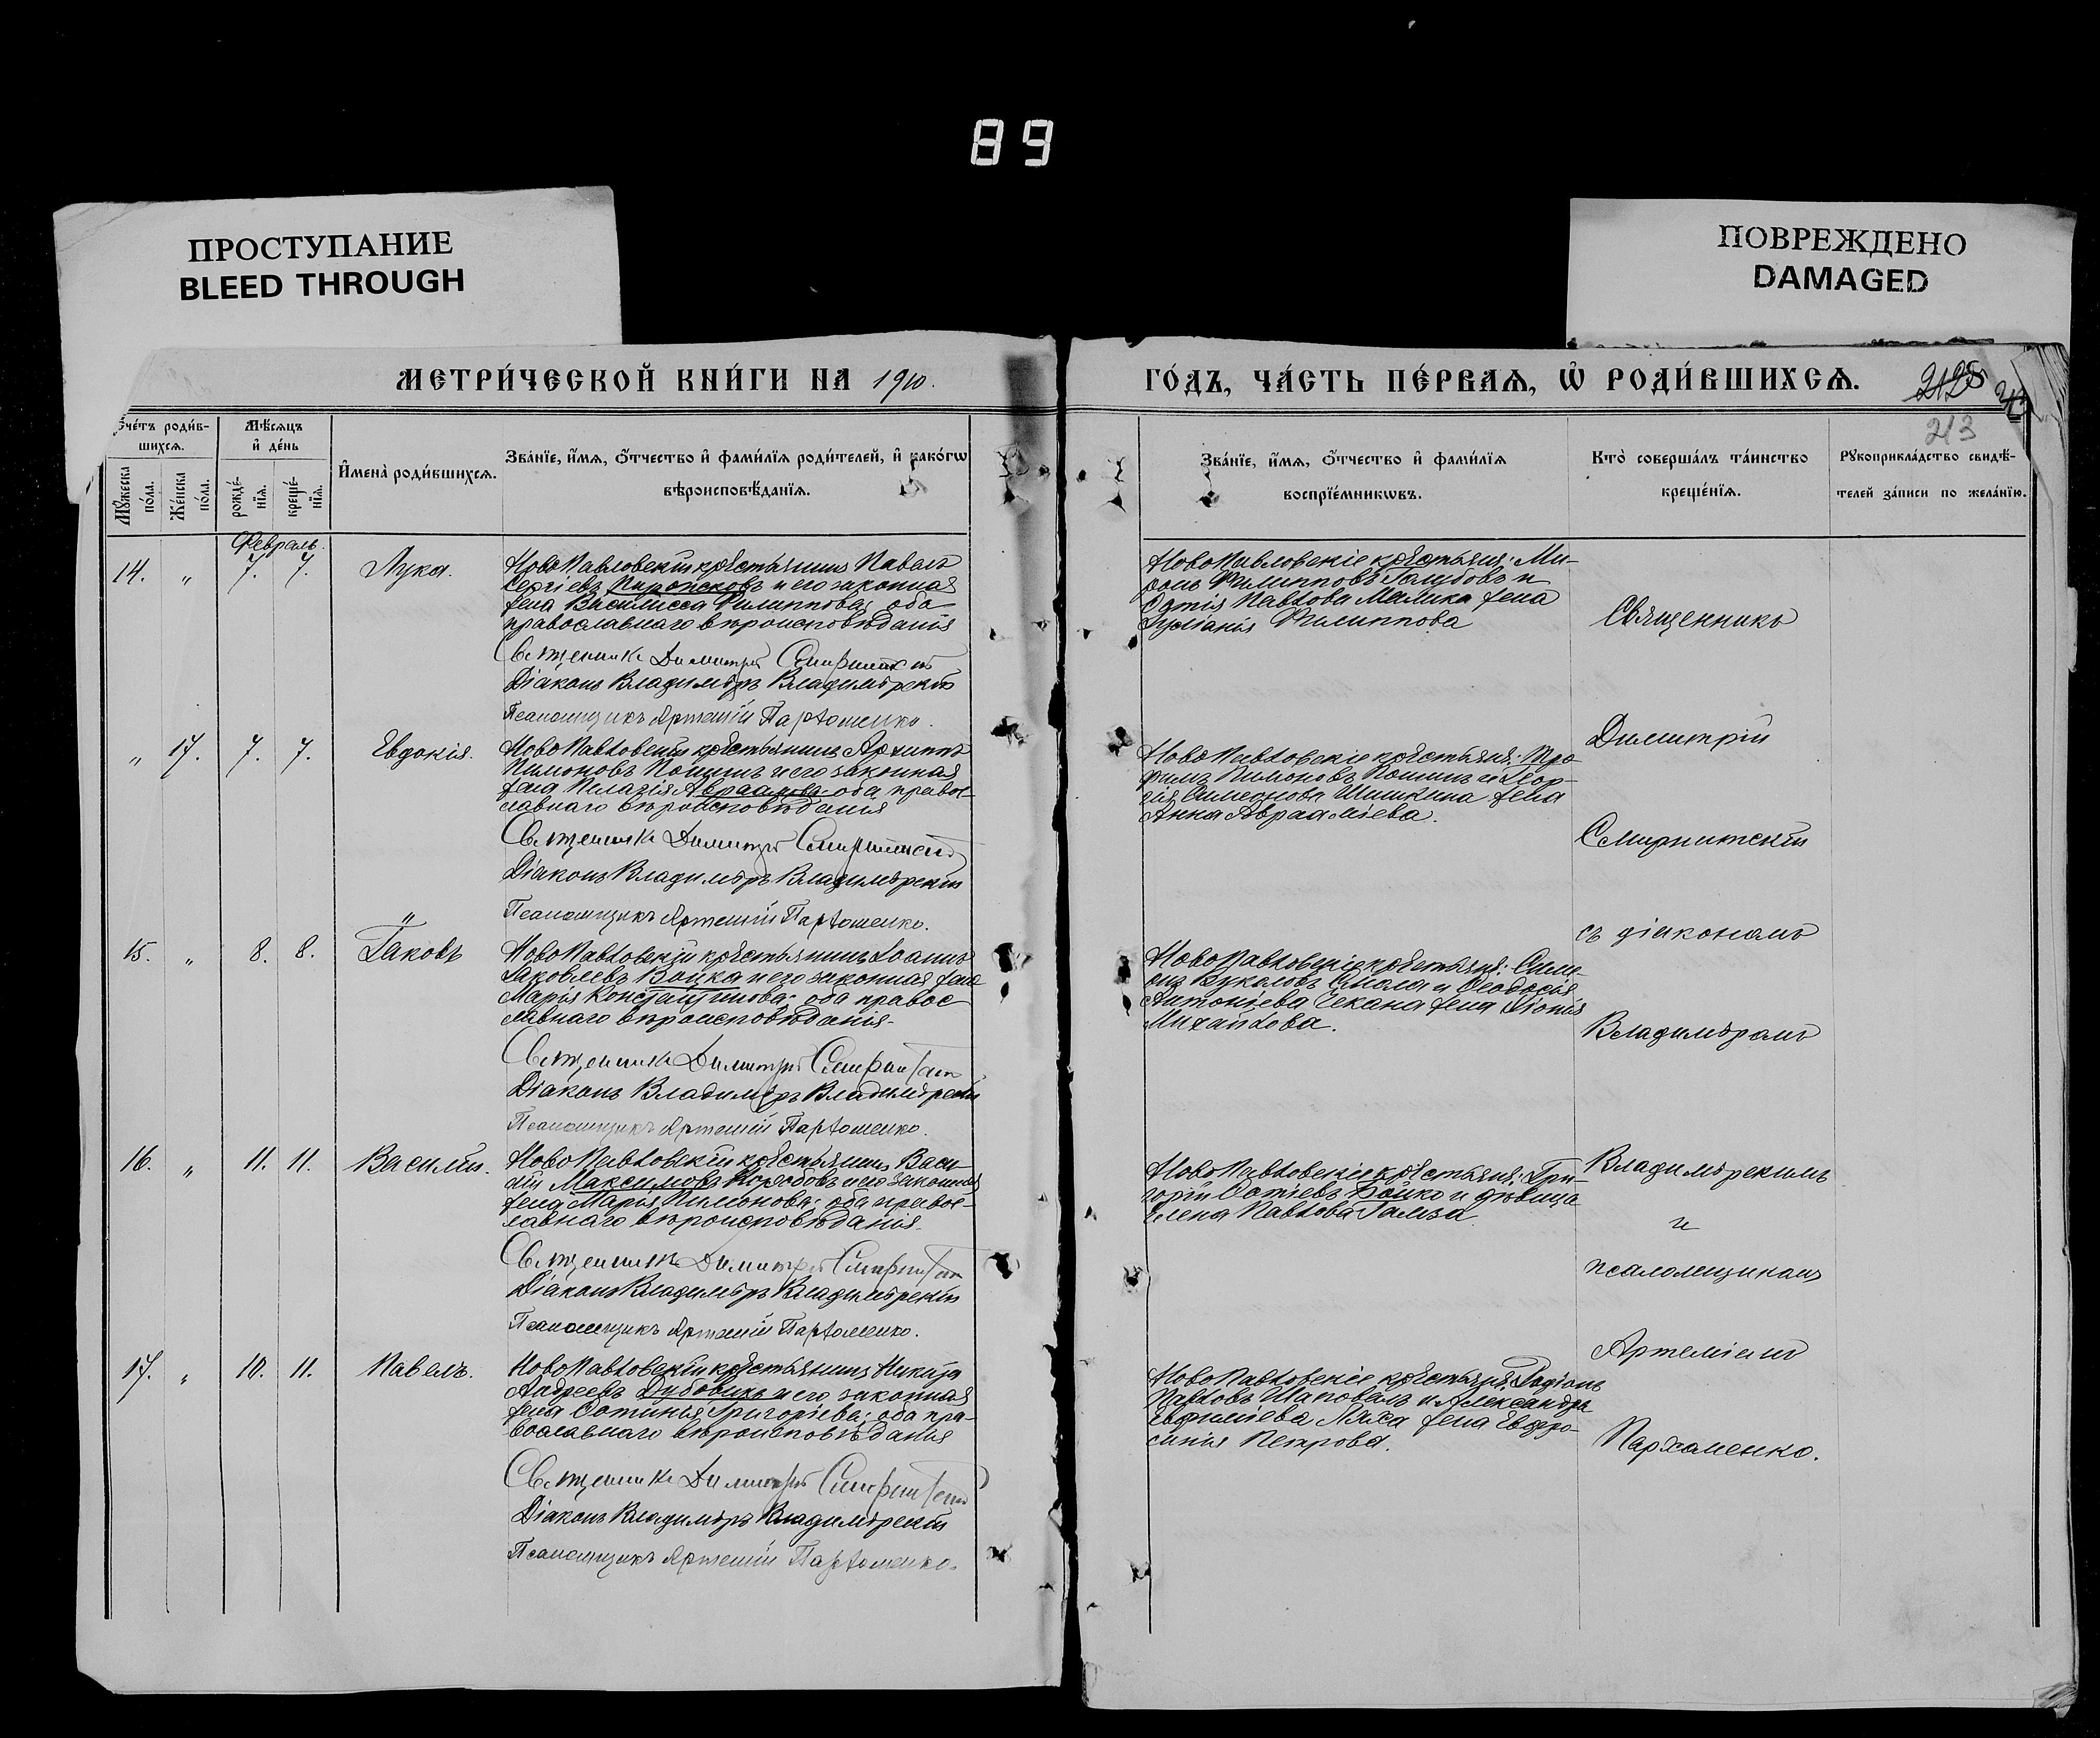 89
ПРОСТУПАНИЕ
BLEED THROUGH
ПОВРЕЖДЕНО
DAMAGED
МЕТРИ́ЧЕСКОЙ КНИ́ГИ НА 1910.
ГО́ДЪ, ЧА́СТЬ ПЕ́РВАѦ, Ѡ҆ РОДИ́ВШИХСѦ.
213
Счéтъ роди́в-
шихсѧ.
Мꙋ́жеска
по́ла.
Же́нска
по́ла.
Мѣ́сѧцъ
и҆ де́нь
рожде́-
нїѧ.
креще́-
нїѧ.
И҆мена̀ роди́вшихсѧ.
Зва́нїе, и҆́мѧ, ѻ҆́тчество и҆ фами́лїѧ роди́телей, и҆ како́гѡ
вѣроисповѣ́данїѧ.
Зва́нїе, и҆́мѧ, ѻ҆́тчество и҆ фами́лїѧ
воспрїе́мникѡвъ.
Кто̀ соверша́лъ та́инство
креще́нїѧ.
Рꙋкоприкла́дство свидѣ́-
телей за́писи по жела́нїю.
Февраль.
14. " 7. 7. Лука.
НовоПавловскій крестьянинъ Павелъ
Сергіевъ и его законная
жена Василисса Филиппова; оба
православнаго вѣроисповѣданія
Священникъ Димитрій Смирнитскій
Діаконъ Владиміръ Владимірскій
Псаломщикъ Артемій Пархоменко.
НовоПавловскіе крестьяне: Ми-
ронъ Филипповъ Голубовъ и
Павлова Малика жена
Филиппова
" 17. 7. 7. Евдокія.
НовоПавловскій крестьянинъ Архиппъ
Пимоновъ Пошинъ и его законная
жена Пелагія Авраамова; оба правос-
лавнаго вѣроисповѣданія
Священникъ Димитрій Смирнитскій
Діаконъ Владиміръ Владимірскій
Псаломщикъ Артемій Пархоменко.
НовоПавловскіе крестьяне: Тро-
фимъ Пимоновъ Пошинъ и Геор-
гія Симеонова Шишкина жена
Анна Авраамиева.
15. " 8. 8. Іаковъ
НовоПавловскій крестьянинъ Іоаннъ
Іаковлевъ Воцка и его законная жена
Марія Константинова; оба правос-
лавнаго вѣроисповѣданія.
Священникъ Димитрій Смирнитскій
Діаконъ Владиміръ Владимірскій
Псаломщикъ Артемій Пархоменко.
НовоПавловскіе крестьяне: Симе-
онъ Вукаловъ Смола и Ѳеодосія
Антоніева Чекана жена
Михайлова.
16. " 11. 11. Василій.
НовоПавловскій крестьянинъ Васи-
лій Максимовъ Коробовъ и его законная
жена Марія Пимонова; оба правос-
лавнаго вѣроисповѣданія.
Священникъ Димитрій Смирнитскій
Діаконъ Владиміръ Владимірскій
Псаломщикъ Артемій Пархоменко.
НовоПавловскіе крестьяне: Гри-
горій Ѳотіевъ Бойко и дѣвица
Елена Павлова
17. " 10. 11. Павелъ.
НовоПавловскій крестьянинъ Никита
Андреевъ Дубовикъ и его законная
жена Фотинія Григоріева; оба пра-
вославнаго вѣроисповѣданія
Священникъ Димитрій Смирнитскій
Діаконъ Владиміръ Владимірскій
Псаломщикъ Артемій Пархоменко.
НовоПавловскіе крестьяне: Родіонъ
Павловъ Шаповалъ и Александра
Евфиміева Ляха жена Евфро-
синія Петрова.
Священникъ
Димитрій
Смирнитскій
съ діакономъ
Владиміромъ
Владимірскимъ
и
псаломщикомъ
Артеміемъ
Пархоменко.